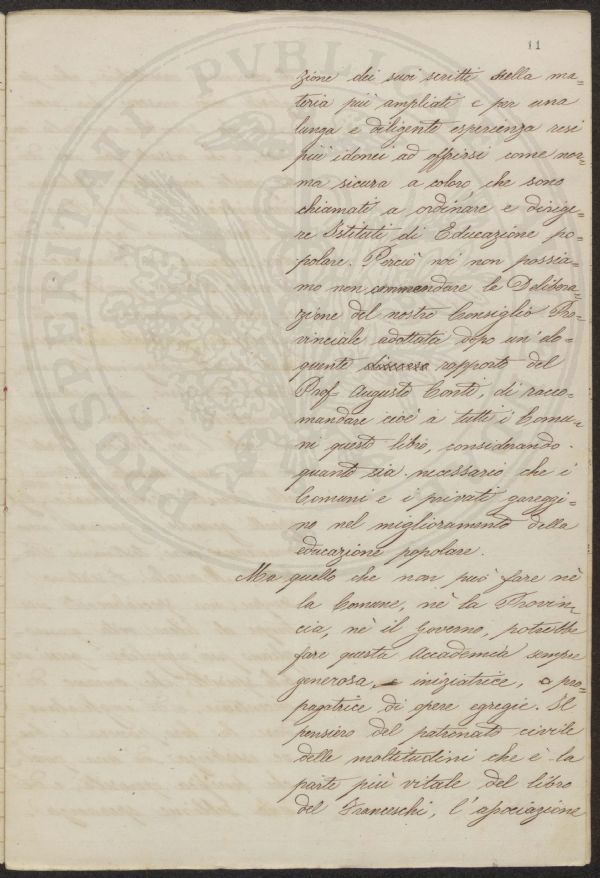 11
zione dei suoi scritti sulla ma=
teria più ampliati e per una
lunga e diligente esperienza resi
più idonei ad offrirsi come nor=
ma sicura a coloro che sono
chiamati a ordinare e dirige=
re Istituti di Educazione po=
polare. Perciò noi non possia=
mo non commendare la Delibera=
zione del nostro Consiglio Pro=
vinciale adottata dopo un'elo=
quente discorso rapporto del
Prof. Augusto Conti, di racco=
mandare cioè a tutti i Comu=
ni questo libro, considerando
quanto sia necessario che i
Comuni e i privati gareggi=
no nel miglioramento della
educazione popolare.
Ma quello che non può fare nè
la Comune, nè la Provin=
cia, nè il Governo, potrebbe
fare questa Accademia sempre
generosa, iniziatrice, o pro=
pagatrice di opere egregie. Il
pensiero del patronato civile
delle moltitudini che è la
parte più vitale del libro
del Franceschi, l'associazione
PROSPERITATI PVBLICAE